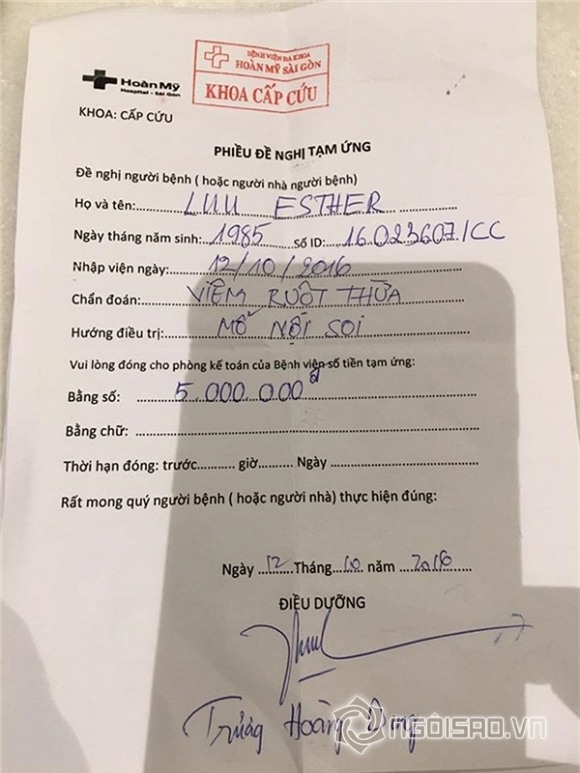 BỆNH VIỆN ĐA KHOA
HOÀN MỸ SÀI GÒN
KHOA CẤP CỨU
Hoàn Mỹ
Hospital - Sài Gòn
KHOA: CẤP CỨU
PHIẾU ĐỀ NGHỊ TẠM ỨNG
Đề nghị người bệnh ( hoặc người nhà người bệnh)
Họ và tên: LUU ESTHER
Ngày tháng năm sinh: 1985 Số ID: 16.023607/CC
Nhập viện ngày: 12/10/2016
Chẩn đoán: VIÊM RUỘT THỪA
Hướng điều trị: MỔ NỘI SOI
Vui lòng đóng cho phòng kế toán của Bệnh viện số tiền tạm ứng:
Bằng số: 5.000.000đ
Bằng chữ:
Thời hạn đóng: trước.......... giờ.......... Ngày
Rất mong quý người bệnh ( hoặc người nhà) thực hiện đúng:
Ngày 12 Tháng 10 năm 2016
ĐIỀU DƯỠNG
Hoàng
NGÔISAO.VN